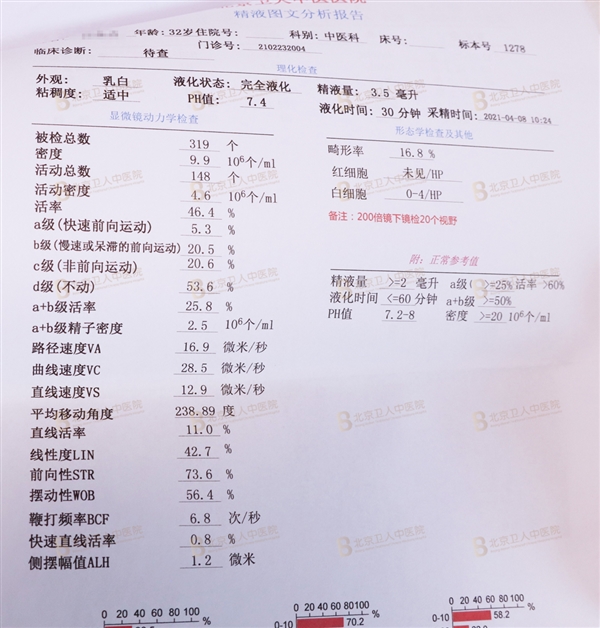 精液图文分析报告
年龄: 32岁 住院号: 科别: 中医科 床号: 标本号 1278
临床诊断: 待查 门诊号: 2102232004
理化检查
外观: 乳白 液化状态: 完全液化 精液量: 3.5 毫升
粘稠度: 适中 PH值: 7.4 液化时间: 30 分钟 采精时间: 2021-04-08 10:24
显微镜动力学检查
被检总数 319 个
密度 9.9 10⁶个/ml
活动总数 148 个
活动密度 4.6 10⁶个/ml
活率 46.4 %
a级(快速前向运动) 5.3 %
b级(慢速或呆滞的前向运动) 20.5 %
c级(非前向运动) 20.6 %
d级(不动) 53.6 %
a+b级活率 25.8 %
a+b级精子密度 2.5 10⁶个/ml
路径速度VA 16.9 微米/秒
曲线速度VC 28.5 微米/秒
直线速度VS 12.9 微米/秒
平均移动角度 238.89 度
直线活率 11.0 %
线性度LIN 42.7 %
前向性STR 73.6 %
摆动性WOB 56.4 %
鞭打频率BCF 6.8 次/秒
快速直线活率 0.8 %
侧摆幅值ALH 1.2 微米
形态学检查及其他
畸形率 16.8 %
红细胞 未见/HP
白细胞 0-4/HP
备注: 200倍镜下镜检20个视野
附: 正常参考值
精液量 >=2 毫升 a级( >=25% 活率 >60%
液化时间 <=60 分钟 a+b级 >=50%
PH值 7.2-8 密度 >=20 10⁶个/ml
0 20 40 60 80 100 %
0 20 40 60 80 100 %
0-10 70.2
0 20 40 60 80 100 %
0-10 58.2
北京卫人中医院